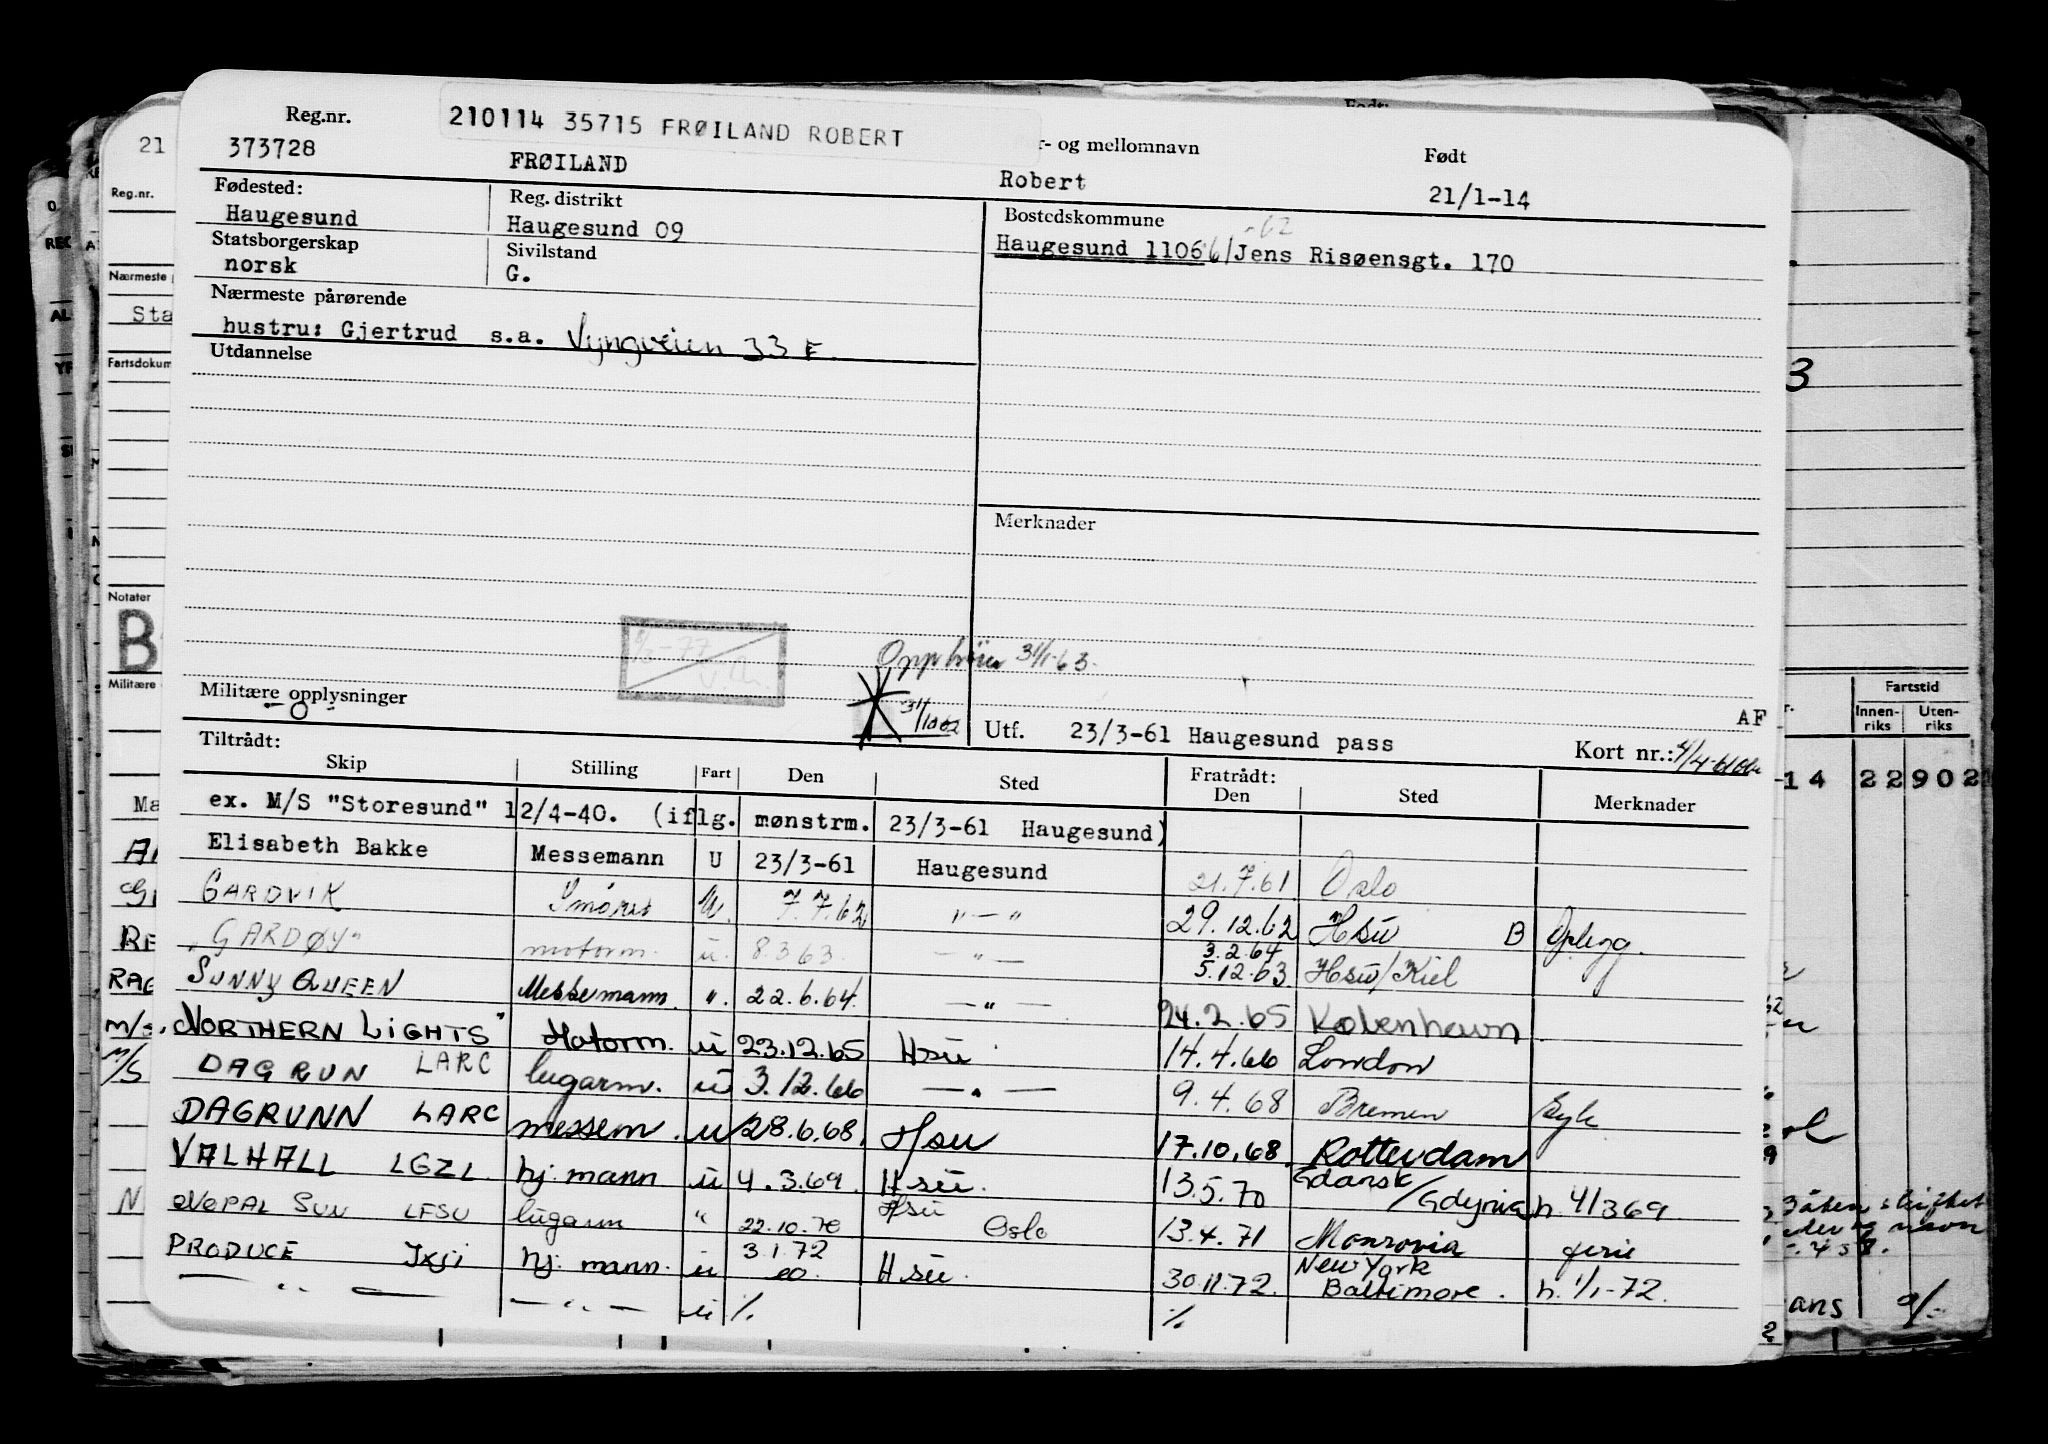 210114 35715 FRØILAND ROBERT
Reg.nr.
373728
FRØILAND
r- og mellomnavn
Robert
Født
21/1-14
Fødested:
Haugesund
Reg. distrikt
Haugesund 09
Bostedskommune
-62
Haugesund 1106 6/Jens Risøensgt. 170
Statsborgerskap
norsk
Sivilstand
G.
Nærmeste pårørende
hustru: Gjertrud s.a. Vyngveien 33 F
Utdannelse
Merknader
Opphører 31/1-63
Militære opplysninger
-0-
31/10 62
Utf. 23/3-61 Haugesund pass
AF
Kort nr.:
Tiltrådt:
Skip Stilling Fart Den Sted Fratrådt: Den Sted Merknader
ex. M/S "Storesund" 12/4-40. (iflg. mønstrm. 23/3-61 Haugesund)
Elisabeth Bakke Messemann U 23/3-61 Haugesund 21.7.61 Oslo
GARDVIK Smøres U. 7.7.62 "—" 29.12.62 Hsu B Oplegg.
"GARDØY" motorm. u. 8.3.63. —"— 3.2.64 5.12.63 Hsu/Kiel
SUNNY QUEEN Messemann. ". 22.6.64. —"— 24.2.65 København
"NORTHERN LIGHTS" Motorm. u 23.12.65 Hsu 14.4.66 London
DAGRUN LARC lugarm. u 3.12.66 —"— 9.4.68 Bremen Syk
DAGRUNN LARC messem. u 28.6.68. Hsu 17.10.68. Rotterdam
VALHALL LGZL hj. mann u 4.3.69. Hsu. 13.5.70 Gdansk/Gdynia h. 4/3 69
NEPAL SUN LFSU lugarm " 22.10.70 Hsu Oslo 13.4.71 Monrovia ferie
PRODUCE JXJI hj. mann. u 3.1.72 Hsu. 30.11.72. New York Baltimore. h. 1/1-72.
— " — — " — u %. %.
21
Reg.nr.
Nærmeste
Sta
Fartsdokum
Notater
B
Militære
Ma
RAG
M/S
Født:
3
Fartstid
Innen-riks
Uten-riks
-14 22902
ans